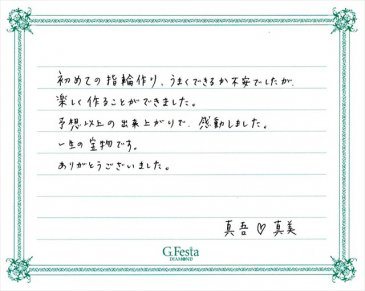 初めての指輪作り、うまくできるか不安でしたが、
楽しく作ることができました。
予想以上の出来上がりで、感動しました。
一生の宝物です。
ありがとうございました。
真吾♡真美
G.Festa
DIAMOND